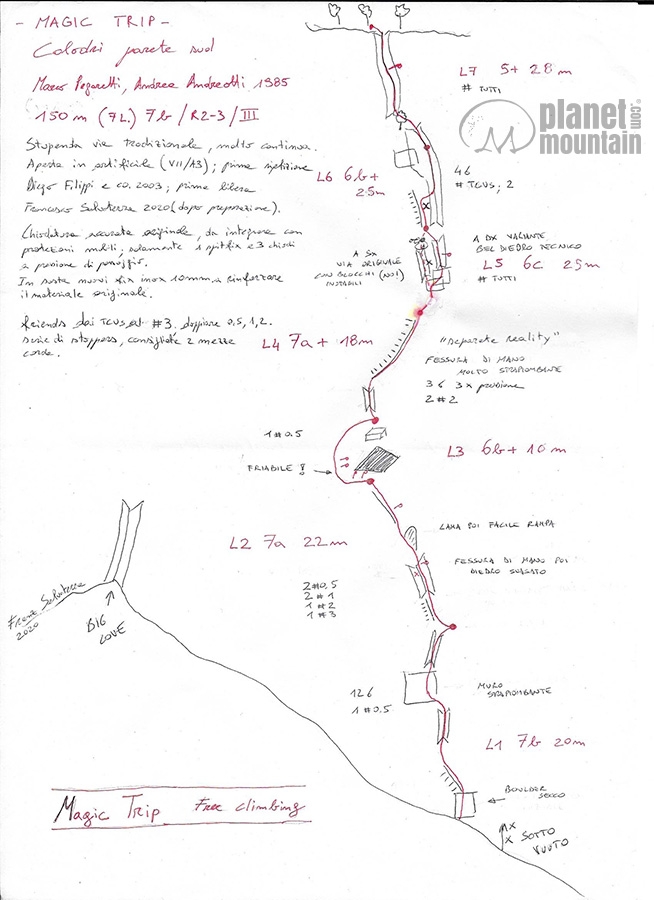 - MAGIC TRIP -
Colodri parete sud
Marco Pegoretti, Andrea Andreotti 1985
150 m (7L) 7b / R2-3 / III
Stupenda via tradizionale, molto continua.
Aperta in artificiale (VII/A3); prima ripetizione
Diego Filippi e co. 2003; prima libera
Francesco Salvaterra 2020 (dopo preparazione).
Chiodatura accurata originale, da integrare con
protezioni mobili, solamente 1 spit fix e 3 chiodi
a pressione di passaggio.
In sosta nuovi fix inox 10mm a rinforzare
il materiale originale.
friends dai TCUS al #3. doppiare 0,5, 1, 2.
serie di stoppers, consigliate 2 mezze
corde.
L7 5+ 28 m
# TUTTI
planet
mountain
.com
L6 6b+
25m
4 6
# TCUS; 2
A SX
VIA ORIGINALE
CON BLOCCHI (NO!)
INSTABILI
A DX VARIANTE
BEL DIEDRO TECNICO
L5 6c 25m
# TUTTI
L4 7a+ 18m
"separate reality"
FESSURA DI MANO
MOLTO STRAPIOMBANTE
3 6 3x pressione
2 #2
1 # 0.5
FRIABILE !
L3 6b+ 10m
LAMA POI FACILE RAMPA
L2 7a 22m
FESSURA DI MANO POI
DIEDRO SVASATO
2 # 0.5
2 # 1
1 # 2
1 # 3
Franz Salvaterra
2020
BIG
LOVE
12 6
1 # 0.5
MURO
STRAPIOMBANTE
L1 7b 20m
BOULDER
SECCO
SOTTO
VUOTO
Magic Trip Free climbing